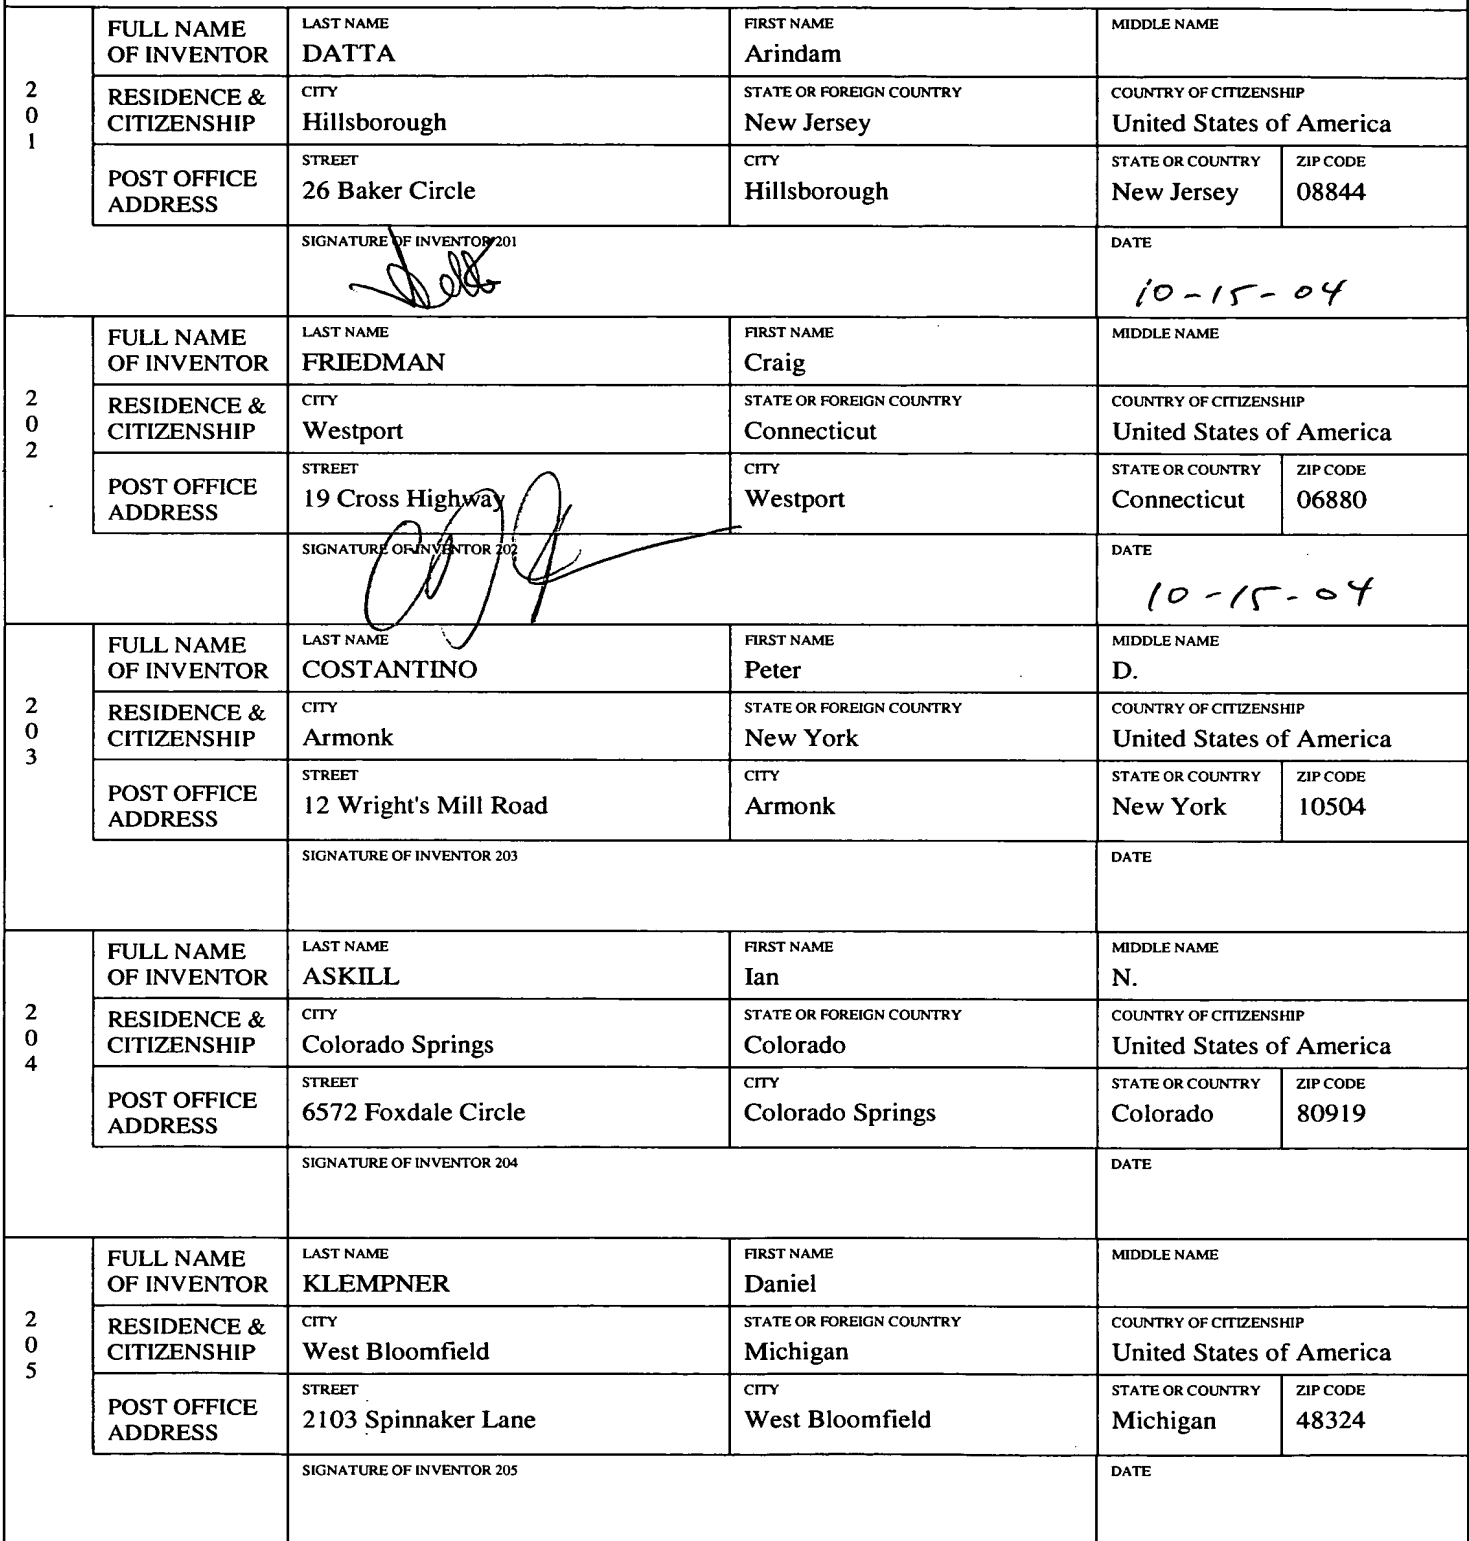 201
FULL NAME OF INVENTOR
LAST NAME
DATTA
FIRST NAME
Arindam
MIDDLE NAME
RESIDENCE & CITIZENSHIP
CITY
Hillsborough
STATE OR FOREIGN COUNTRY
New Jersey
COUNTRY OF CITIZENSHIP
United States of America
POST OFFICE ADDRESS
STREET
26 Baker Circle
CITY
Hillsborough
STATE OR COUNTRY
New Jersey
ZIP CODE
08844
SIGNATURE OF INVENTOR 201
DATE
10-15-04
202
FULL NAME OF INVENTOR
LAST NAME
FRIEDMAN
FIRST NAME
Craig
MIDDLE NAME
RESIDENCE & CITIZENSHIP
CITY
Westport
STATE OR FOREIGN COUNTRY
Connecticut
COUNTRY OF CITIZENSHIP
United States of America
POST OFFICE ADDRESS
STREET
19 Cross Highway
CITY
Westport
STATE OR COUNTRY
Connecticut
ZIP CODE
06880
SIGNATURE OF INVENTOR 202
DATE
10-15-04
203
FULL NAME OF INVENTOR
LAST NAME
COSTANTINO
FIRST NAME
Peter
MIDDLE NAME
D.
RESIDENCE & CITIZENSHIP
CITY
Armonk
STATE OR FOREIGN COUNTRY
New York
COUNTRY OF CITIZENSHIP
United States of America
POST OFFICE ADDRESS
STREET
12 Wright's Mill Road
CITY
Armonk
STATE OR COUNTRY
New York
ZIP CODE
10504
SIGNATURE OF INVENTOR 203
DATE
204
FULL NAME OF INVENTOR
LAST NAME
ASKILL
FIRST NAME
Ian
MIDDLE NAME
N.
RESIDENCE & CITIZENSHIP
CITY
Colorado Springs
STATE OR FOREIGN COUNTRY
Colorado
COUNTRY OF CITIZENSHIP
United States of America
POST OFFICE ADDRESS
STREET
6572 Foxdale Circle
CITY
Colorado Springs
STATE OR COUNTRY
Colorado
ZIP CODE
80919
SIGNATURE OF INVENTOR 204
DATE
205
FULL NAME OF INVENTOR
LAST NAME
KLEMPNER
FIRST NAME
Daniel
MIDDLE NAME
RESIDENCE & CITIZENSHIP
CITY
West Bloomfield
STATE OR FOREIGN COUNTRY
Michigan
COUNTRY OF CITIZENSHIP
United States of America
POST OFFICE ADDRESS
STREET
2103 Spinnaker Lane
CITY
West Bloomfield
STATE OR COUNTRY
Michigan
ZIP CODE
48324
SIGNATURE OF INVENTOR 205
DATE